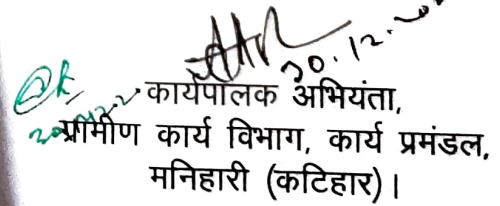 30.12.20
कार्यपालक अभियंता,
ग्रामीण कार्य विभाग, कार्य प्रमंडल,
मनिहारी (कटिहार)।